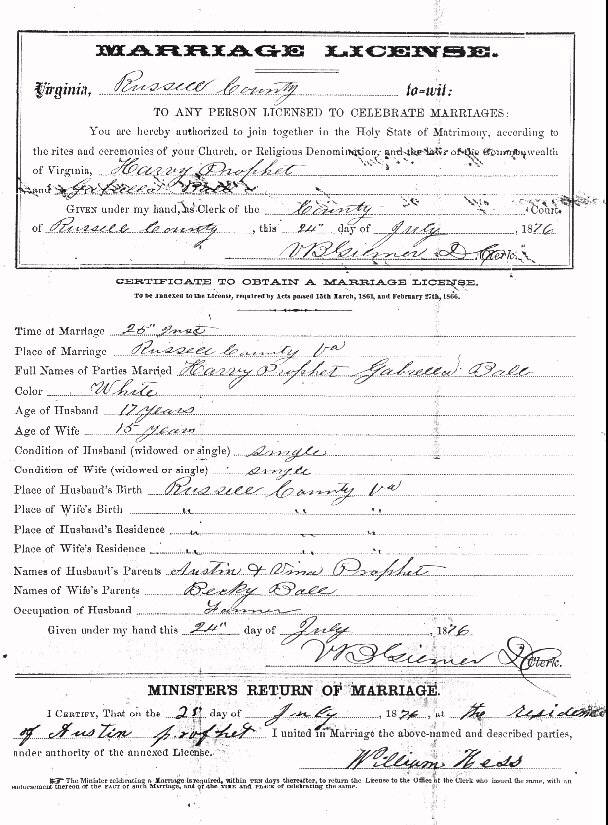 MARRIAGE LICENSE.
Virginia, Russell County to-wit:
TO ANY PERSON LICENSED TO CELEBRATE MARRIAGES:
You are hereby authorized to join together in the Holy State of Matrimony, according to
the rites and ceremonies of your Church, or Religious Denomination, and the laws of the Commonwealth
of Virginia, Harvy Prophet
and Gabriella Ball
GIVEN under my hand, as Clerk of the County Court
of Russell County, this 24" day of July, 1876
V B Giemer D Clerk.
CERTIFICATE TO OBTAIN A MARRIAGE LICENSE.
To be Annexed to the License, required by Acts passed 15th March, 1861, and February 27th, 1866.
Time of Marriage 25" Inst
Place of Marriage Russell County Va
Full Names of Parties Married Harvy Prophet Gabriella Ball
Color White
Age of Husband 17 Years
Age of Wife 15 Years
Condition of Husband (widowed or single) single
Condition of Wife (widowed or single) single
Place of Husband's Birth Russell County Va
Place of Wife's Birth " " "
Place of Husband's Residence " "
Place of Wife's Residence " " "
Names of Husband's Parents Austin & Vina Prophet
Names of Wife's Parents Becky Ball
Occupation of Husband Farmer
Given under my hand this 24" day of July, 1876
V B Giemer D Clerk.
MINISTER'S RETURN OF MARRIAGE.
I CERTIFY, That on the 25 day of July, 1876, at the residence
of Austin prophet I united in Marriage the above-named and described parties,
under authority of the annexed License.
William Hess
☞ The Minister celebrating a Marriage is required, within TEN days thereafter, to return the License to the Office of the Clerk who issued the same, with an
endorsement thereon of the FACT of such Marriage, and of the TIME and PLACE of celebrating the same.